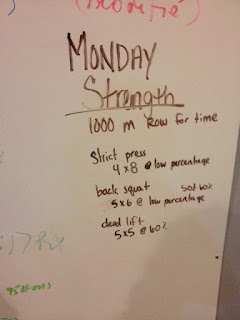 MONDAY
Strength
1000 m Row for time
Strict press
4 x 8 @ low percentage
back squat 50% 60%
5 x 6 @ low percentage
dead lift
5 x 5 @ 60%